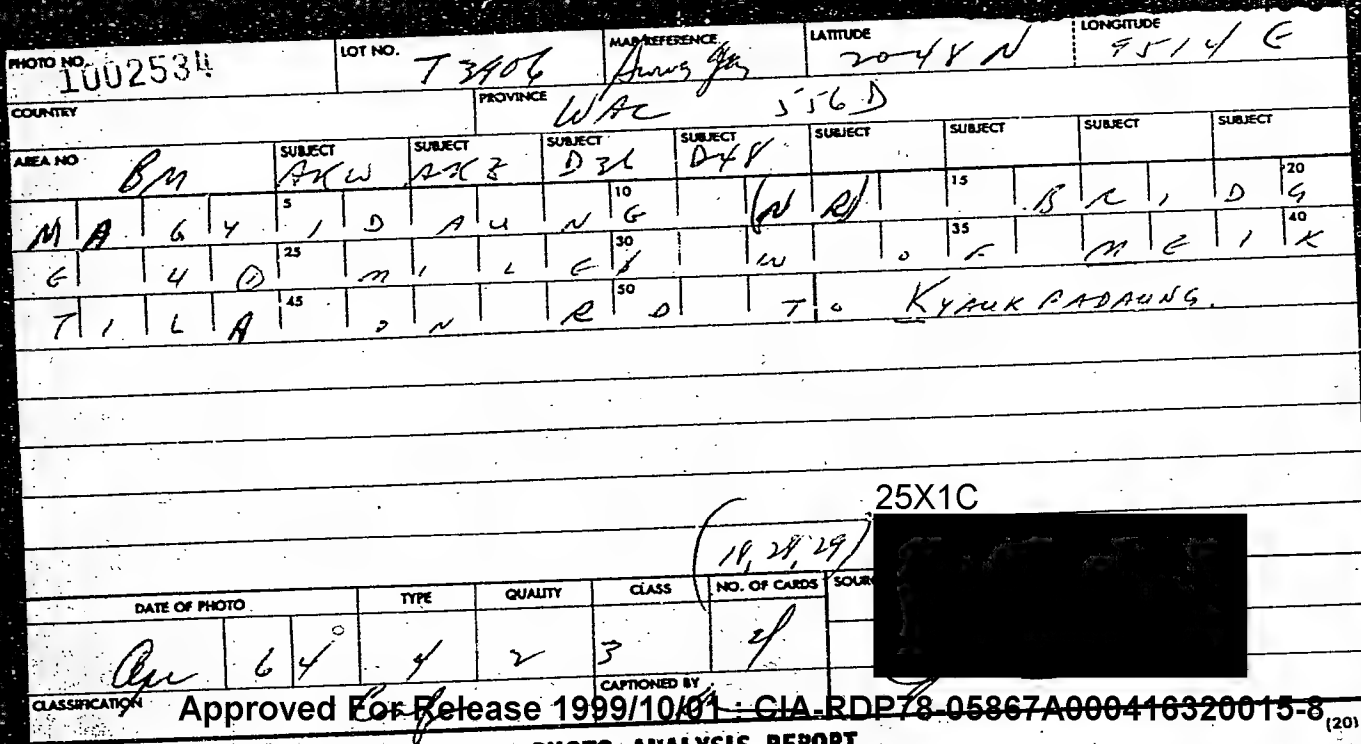 PHOTO NO. 1002534 LOT NO. T3906 MAP REFERENCE LATITUDE 2048 N LONGITUDE 9514 E
COUNTRY PROVINCE WAC 556D
AREA NO BM SUBJECT AKW SUBJECT AKZ SUBJECT D36 SUBJECT D48 SUBJECT SUBJECT SUBJECT SUBJECT
MAGY 5 IDAUN 10 G (NR) 15 BRID 20 G
E 40 25 MILE 30 W O 35 F MEI 40 K
TILA 45 ON RD 50 TO KYAUK PADAUNG.
25X1C
(18, 28, 29)
DATE OF PHOTO TYPE QUALITY CLASS NO. OF CARDS
64 4 2 3 4
CLASSIFICATION CAPTIONED BY
Approved For Release 1999/10/01 : CIA-RDP78-05867A000416320015-8 (20)
PHOTO ANALYSIS REPORT